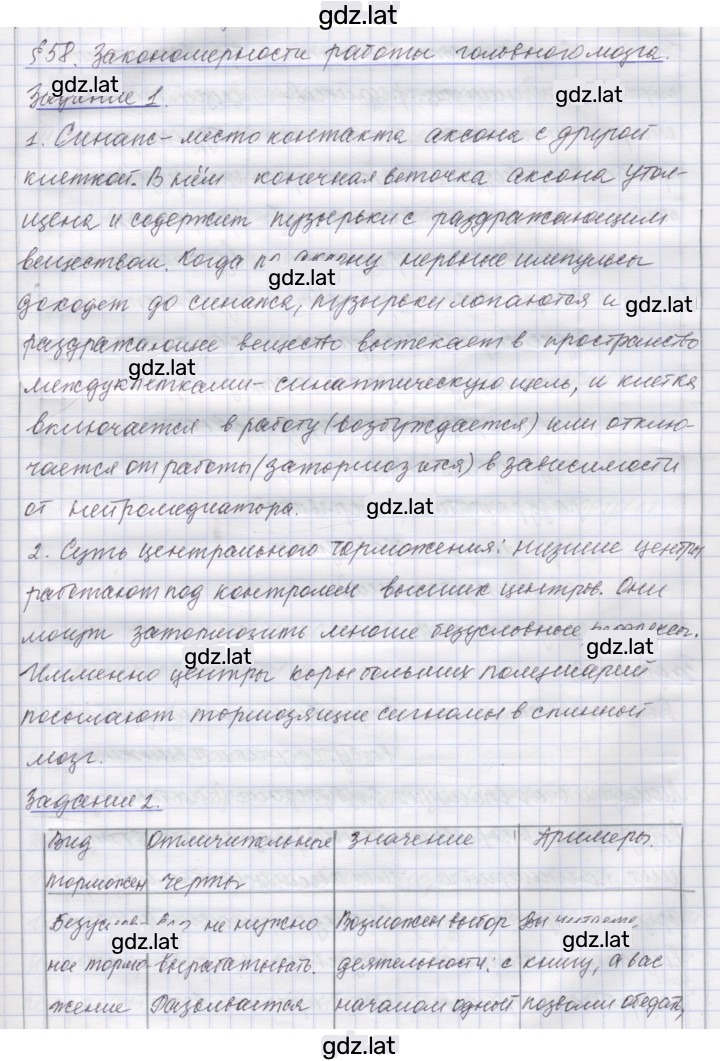 gdz.lat
§58. Закономерности работы головного мозга.
gdz.lat
gdz.lat
Задание 1.
1. Синапс - место контакта аксона с другой
клеткой. В нём конечная веточка аксона утол-
щена и содержит пузырьки с раздражающим
веществом. Когда по аксону нервные импульсы
gdz.lat
доходят до синапса, пузырьки лопаются и
gdz.lat
раздражающие вещество вытекает в пространство
gdz.lat
между клетками - синаптическую щель, и клетка
включается в работу (возбуждается) или отклю-
чается от работы (затормозится) в зависимости
от нейромедиатора.
gdz.lat
2. Суть центрального торможения: низшие центры
работают под контролем высших центров. Они
могут затормозить многие безусловные рефлексы.
gdz.lat
gdz.lat
Именно центры коры больших полушарий
посылают тормозящие сигналы в спинный
мозг.
Задание 2.
Вид Отличительные Значение Примеры.
торможен черты
Безуслов- не нужно Возможен выбор Вы
gdz.lat
gdz.lat
ное тормо- вырабатывать. деятельности: с книгу, а вас
жение Развивается началом одной позвали обедать,
gdz.lat